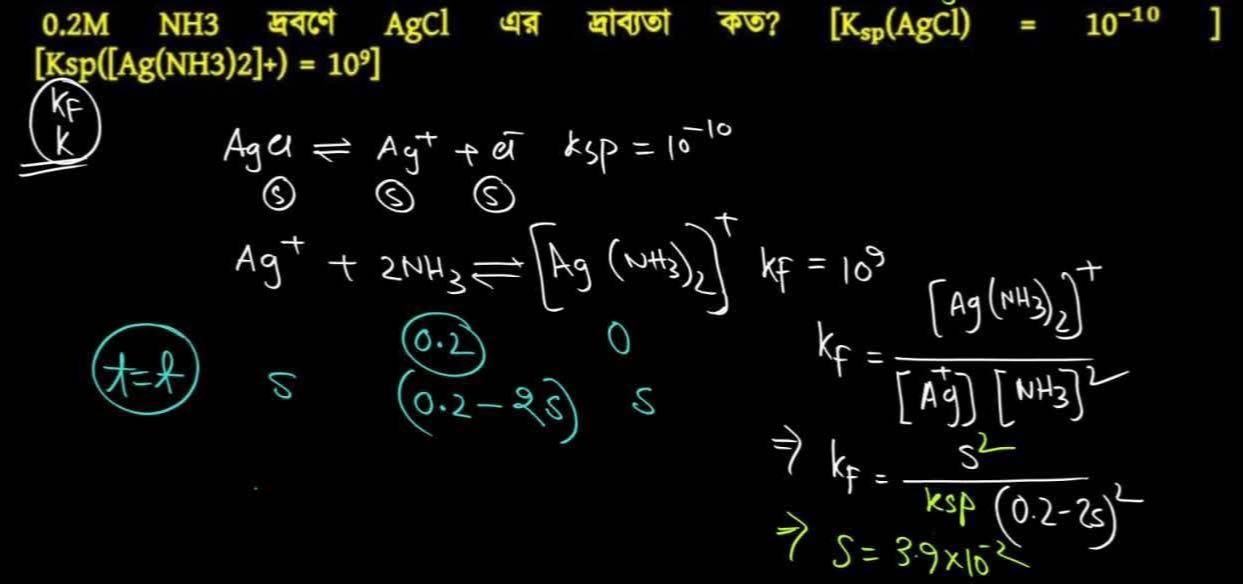 0.2M NH3 দ্রবণে AgCl এর দ্রাব্যতা কত? [K_sp(AgCl) = 10⁻¹⁰ ]
[Ksp([Ag(NH3)2]+) = 10⁹]
KF
K
AgCl ⇌ Ag⁺ + Cl⁻ ksp = 10⁻¹⁰
S S S
Ag⁺ + 2NH₃ ⇌ [Ag(NH₃)₂]⁺ kf = 10⁹
0.2 0
t=t S (0.2-2S) S
kf = [Ag(NH₃)₂]⁺ / [Ag⁺] [NH₃]²
⇒ kf = S² / ksp (0.2-2s)²
⇒ S = 3.9×10⁻²